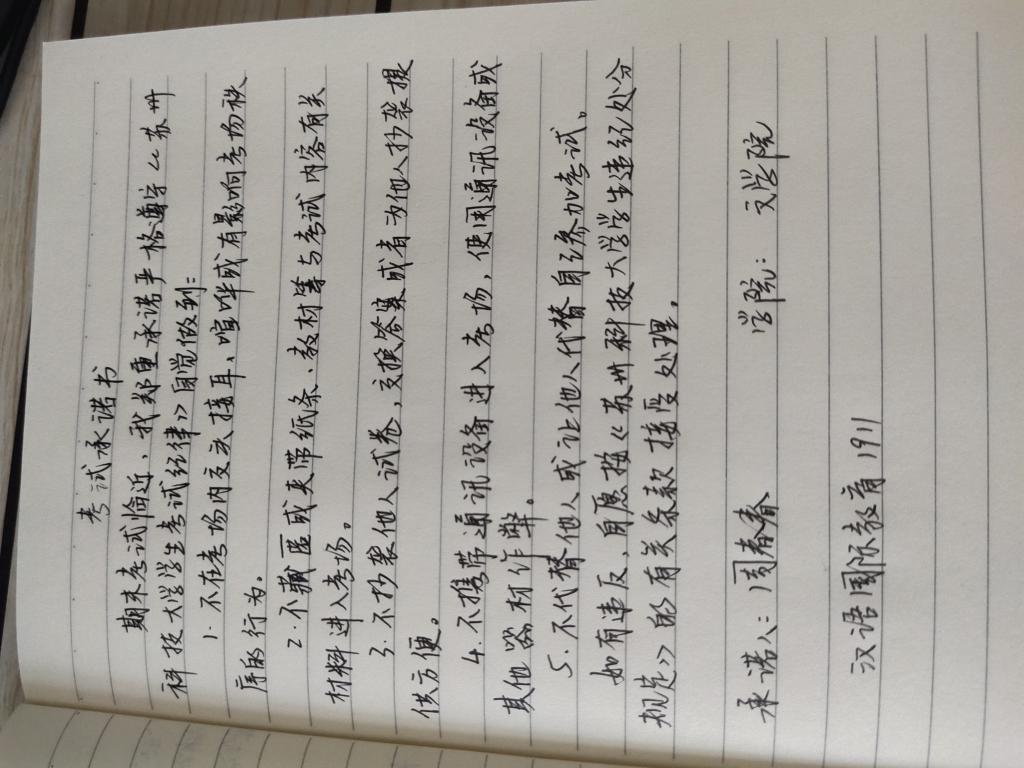 考试承诺书
期末考试临近，我郑重承诺严格遵守《苏州
科技大学学生考试纪律》自觉做到：
1. 不在考场内交头接耳、喧哗或有影响考场秩
序的行为。
2. 不藏匿或夹带纸条、教材等与考试内容有关
材料进入考场。
3. 不抄袭他人试卷，交换答案或者为他人抄袭提
供方便。
4. 不携带通讯设备进入考场，使用通讯设备或
其他器材作弊。
5. 不代替他人或让他人代替自己参加考试。
如有违反，自愿按《苏州科技大学学生违纪处分
规定》的有关条款接受处理。
承诺人：周春春 学院：文学院
汉语国际教育1911